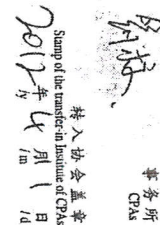 事务所
CPAs
转入协会盖章
Stamp of the transfer-in Institute of CPAs
2012年4月1日
/y /m /d